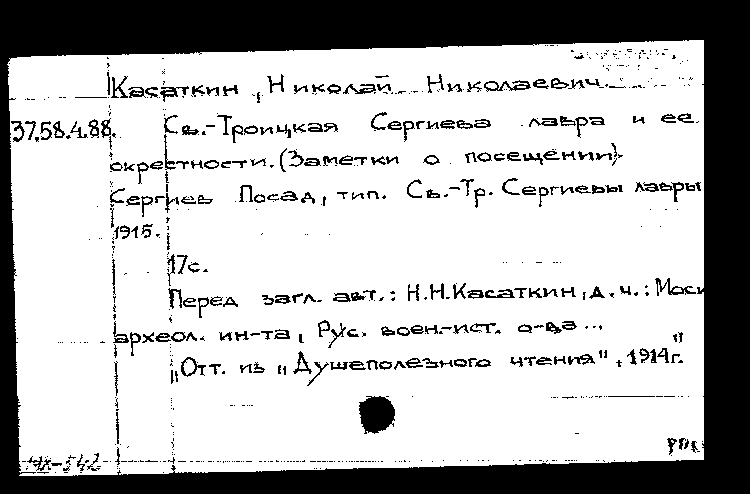 Касаткин, Николай Николаевич.
37.58.4.88. Св.-Троицкая Сергиева лавра и ее
окрестности. (Заметки о посещении)
Сергиев Посад, тип. Св.-Тр. Сергиевы лавры
1915.
17с.
Перед загл. авт.: Н.Н.Касаткин, д.ч.: Моск
археол. ин-та, Рус. воен.-ист. о-ва...
"Отт. из "Душеполезного чтения", 1914г."